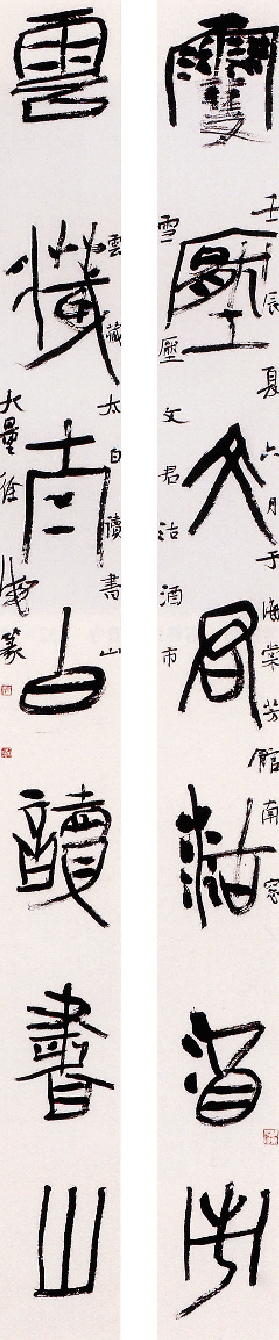 雪壓文君沽酒市
壬辰夏六月于海棠芳館南窗
雪壓文君沽酒市
雲藏太白讀書山
雲藏太白讀書山
大量徐
篆